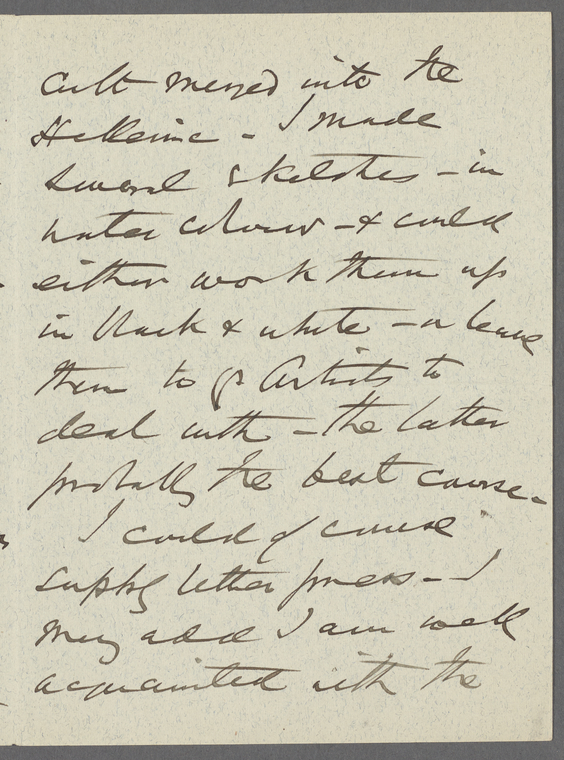 cult merged into the
Hellenic - I made
several sketches - in
water colour - & could
either work them up
in black & white - or leave
them to yr Artists to
deal with - the latter
probably the best course -
I could of course
supply letter press - I
may add I am well
acquainted with the